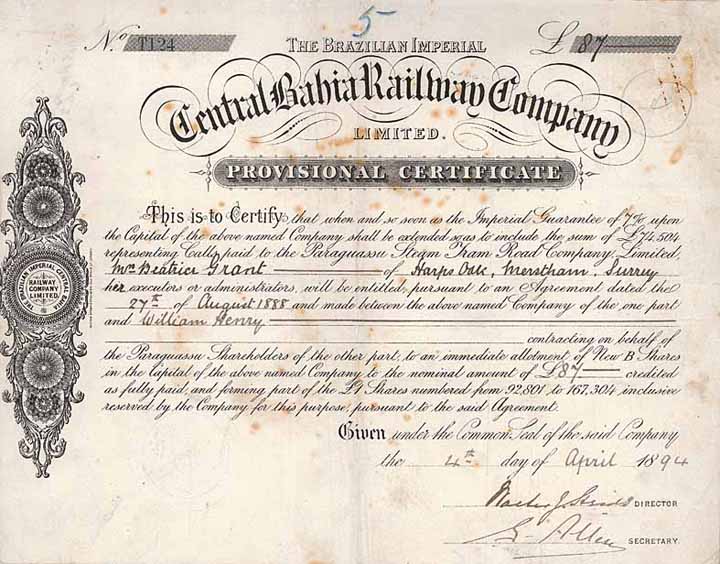 5
No. T124 £87
THE BRAZILIAN IMPERIAL
Central Bahia Railway Company
LIMITED.
PROVISIONAL CERTIFICATE
This is to Certify that when and so soon as the Imperial Guarantee of 7% upon
the Capital of the above named Company shall be extended so as to include the sum of £74,504
representing Calls paid to the Paraguassu Steam Tram Road Company, Limited,
Mrs Beatrice Grant of Harps Oak, Merstham, Surrey
her executors or administrators, will be entitled, pursuant to an Agreement dated the
27th of August 1888 and made between the above named Company of the one part
and William Henry
contracting on behalf of
the Paraguassu Shareholders of the other part, to an immediate allotment of New B Shares
in the capital of the above named Company to the nominal amount of £87 credited
as fully paid, and forming part of the £1 Shares numbered from 92,801 to 167,304 inclusive
reserved by the Company for this purpose, pursuant to the said Agreement.
Given under the Common Seal of the said Company
the 4th day of April 1894
DIRECTOR
G. Allen SECRETARY.
THE BRAZILIAN IMPERIAL CENTRAL
RAILWAY
COMPANY
LIMITED